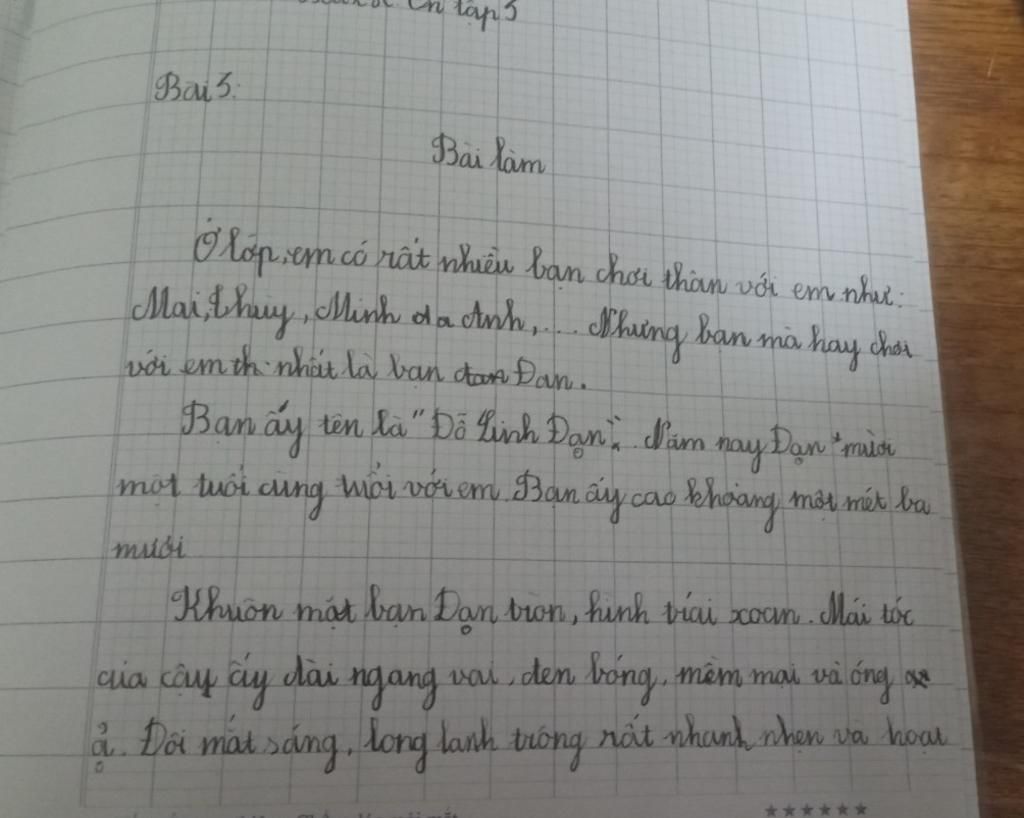 ôn tập 3
Bài 3:
Bài làm
Ở lớp, em có rất nhiều bạn chơi thân với em như:
Mai, thuy, Minh da Anh,... Nhưng bạn mà hay chơi
với em th nhất là bạn Đan.
Bạn ấy tên là "Đỗ Linh Đạn". Năm nay Đạn mười
một tuổi cùng tuổi với em. Bạn ấy cao khoảng một mét ba
mươi
Khuôn mặt bạn Đạn tròn, hình trái xoan. Mái tóc
của cậu ấy dài ngang vai, đen bóng, mềm mại và óng
ả. Đôi mắt sáng, long lanh trông rất nhanh nhẹn và hoạt